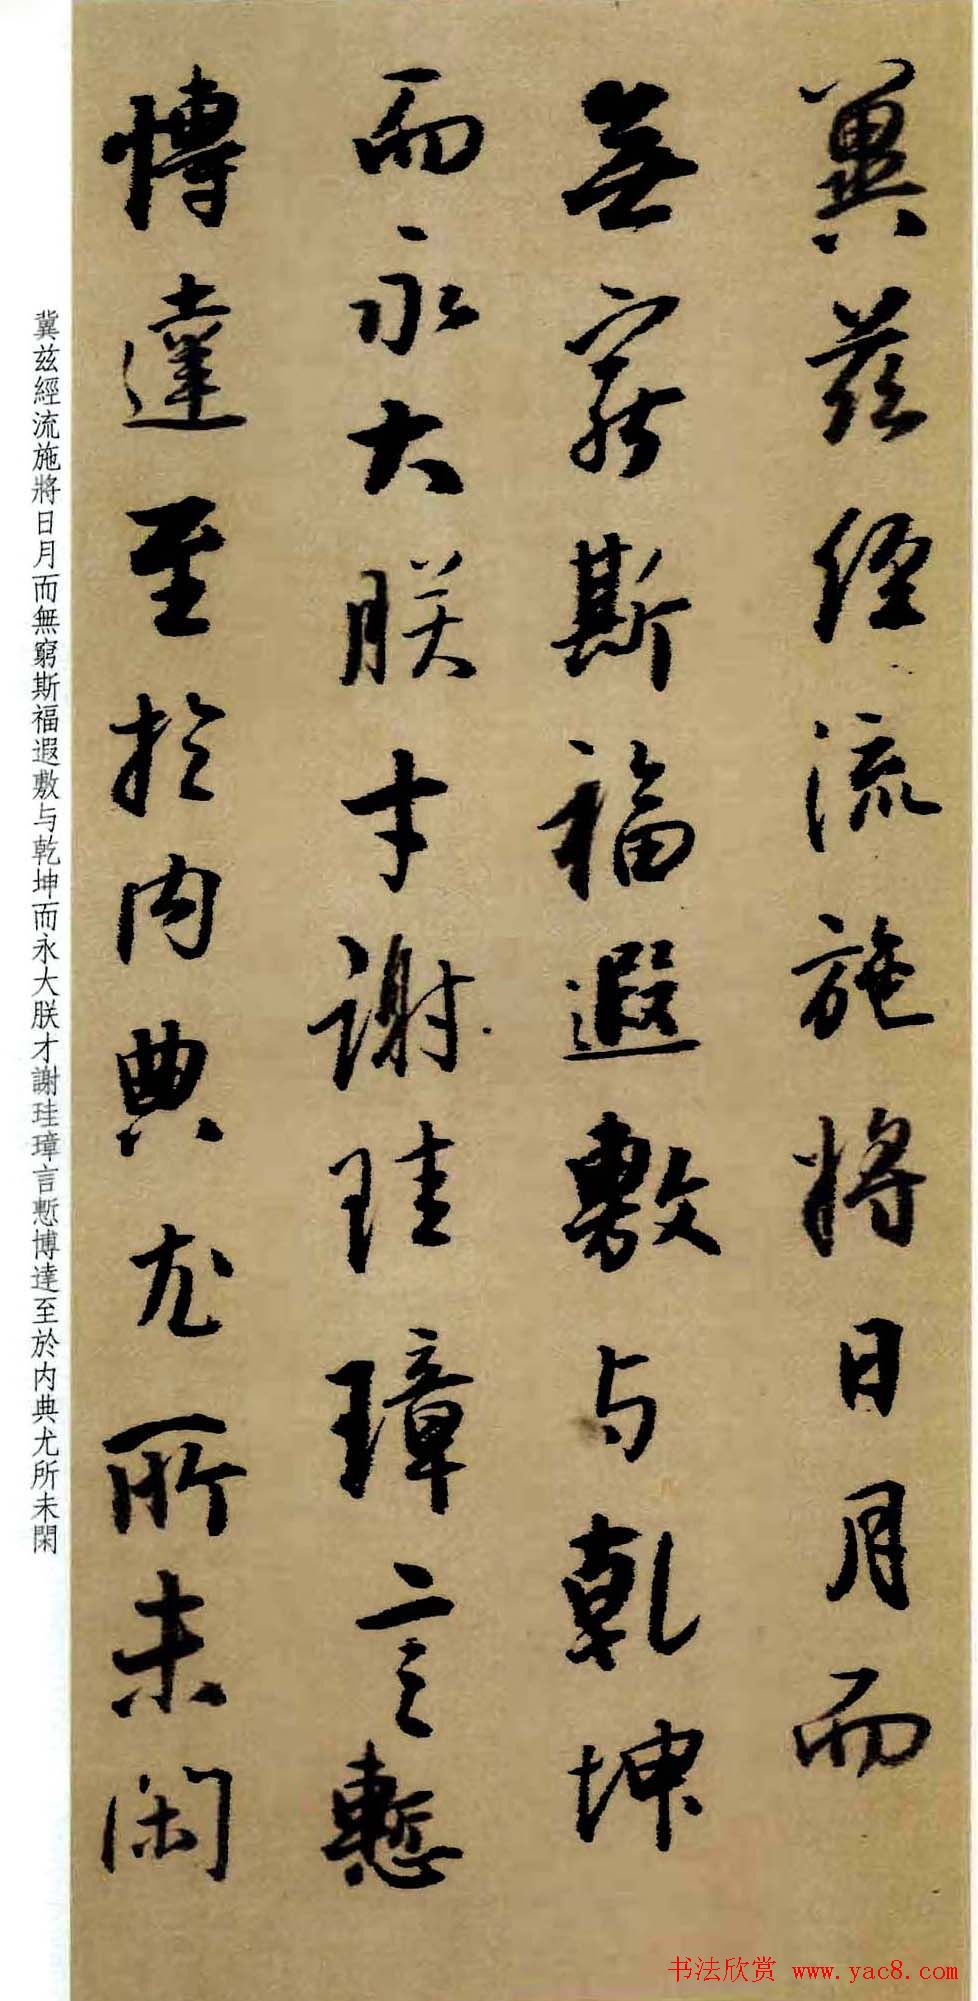 冀兹經流施將日月而
無窮斯福遐敷与乾坤
而永大朕才謝珪璋言慙
博達至於内典尤所未閑
冀兹經流施將日月而無窮斯福遐敷与乾坤而永大朕才謝珪璋言慙博達至於内典尤所未閑
书法欣赏 www.yac8.com